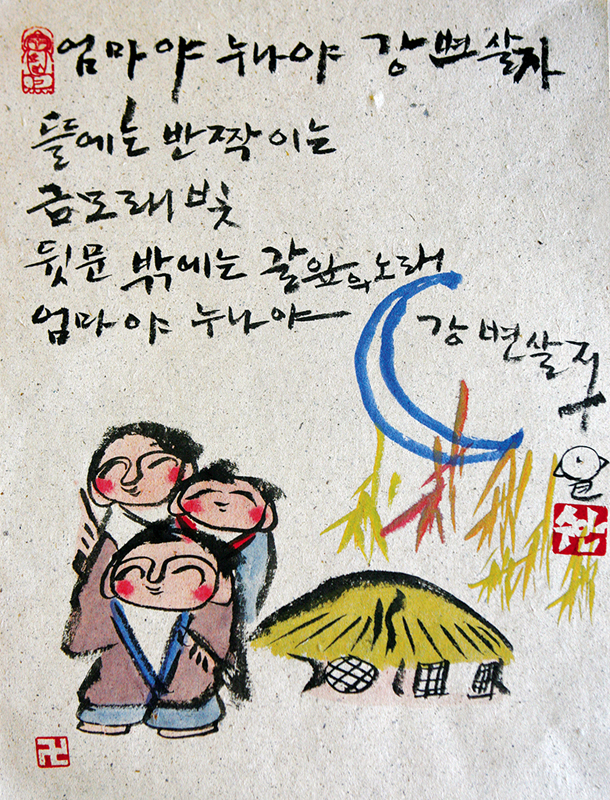 엄마야 누나야 강변살자
뜰에는 반짝이는
금모래빛
뒷문 밖에는 갈잎의 노래
엄마야 누나야 강변살자
卍